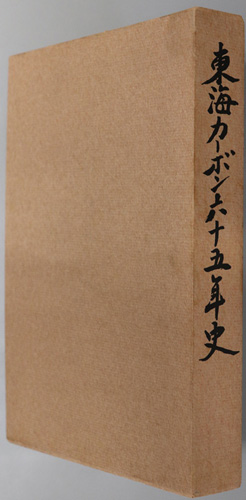 東海カーボン六十五年史